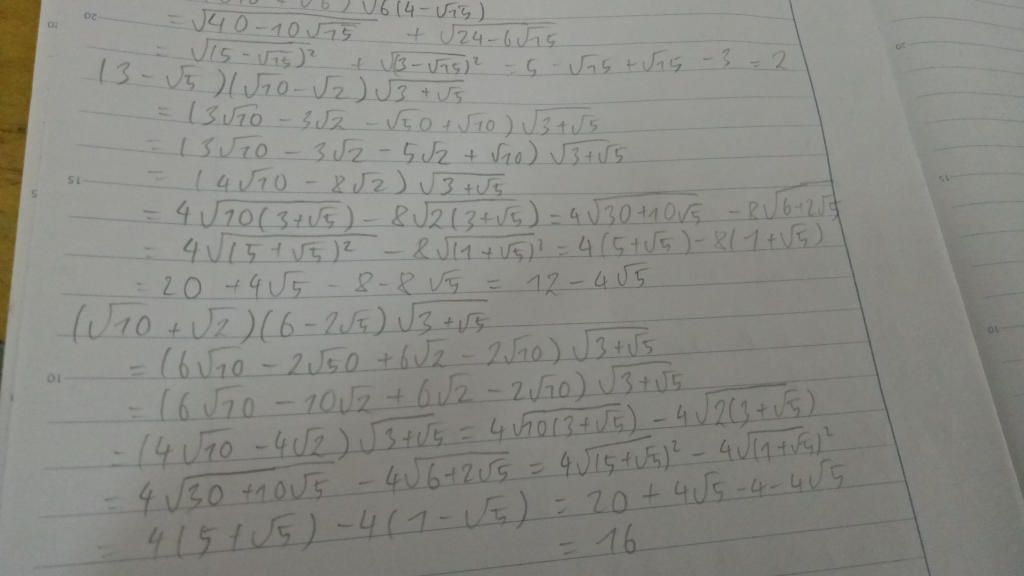 √6(4-√15)
= √40-10√15 + √24-6√15
= √(5-√15)² + √(3-√15)² = 5-√15+√15-3 = 2
(3-√5)(√10-√2)√3+√5
= (3√10-3√2-√50+√10)√3+√5
= (3√10-3√2-5√2+√10)√3+√5
= (4√10-8√2)√3+√5
= 4√10(3+√5)-8√2(3+√5) = 4√30+10√5-8√6+2√5
= 4√(5+√5)²-8√(1+√5)² = 4(5+√5)-8(1+√5)
= 20+4√5-8-8√5 = 12-4√5
(√10+√2)(6-2√5)√3+√5
= (6√10-2√50+6√2-2√10)√3+√5
= (6√10-10√2+6√2-2√10)√3+√5
= (4√10-4√2)√3+√5 = 4√10(3+√5)-4√2(3+√5)
= 4√30+10√5-4√6+2√5 = 4√(5+√5)²-4√(1+√5)²
= 4(5+√5)-4(1-√5) = 20+4√5-4-4√5
= 16
20
15
10
5
10